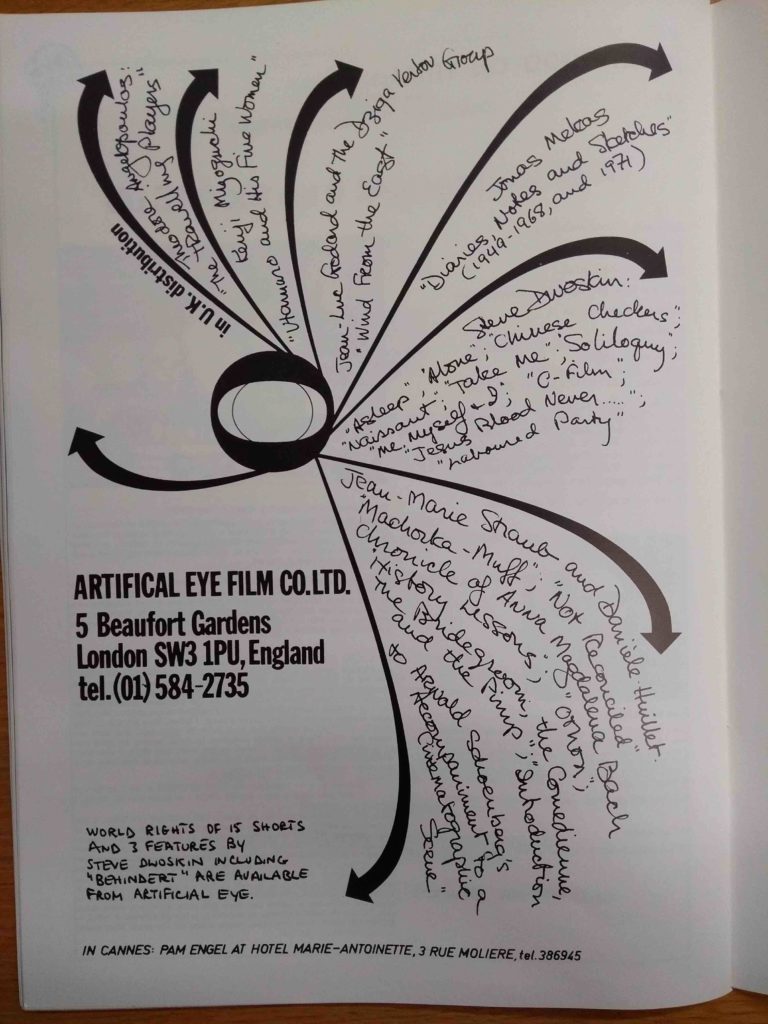 in U.K. distribution
Theodore Angelopoulos:
"The Travelling Players"
Kenji Mizoguchi
"Utamaro and His Five Women"
Jean-Luc Godard and the Dziga Vertov Group
"Wind From the East"
Jonas Mekas
"Diaries, Notes and Sketches"
(1949-1968, and 1971)
Steve Dwoskin:
"Asleep"; "Alone"; "Chinese Checkers";
"Naissant"; "Take Me"; Soliloquy";
"Me, Myself & I"; "C-Film";
"Jesus Blood Never.....";
"Laboured Party"
Jean-Marie Straub and Danièle Huillet.
"Machorka-Muff"; "Not Reconciled"
Chronicle of Anna Magdalena Bach
History Lessons; "Othon";
the Bridegroom, the Comedienne,
and the Pimp"; "Introduction
to Arnold Schoenberg's
Accompaniment to a
Cinematographic
Scene"
ARTIFICAL EYE FILM CO.LTD.
5 Beaufort Gardens
London SW3 1PU, England
tel.(01) 584-2735
WORLD RIGHTS OF 15 SHORTS
AND 3 FEATURES BY
STEVE DWOSKIN INCLUDING
"BEHINDERT" ARE AVAILABLE
FROM ARTIFICIAL EYE.
IN CANNES: PAM ENGEL AT HOTEL MARIE-ANTOINETTE, 3 RUE MOLIERE, tel. 386945